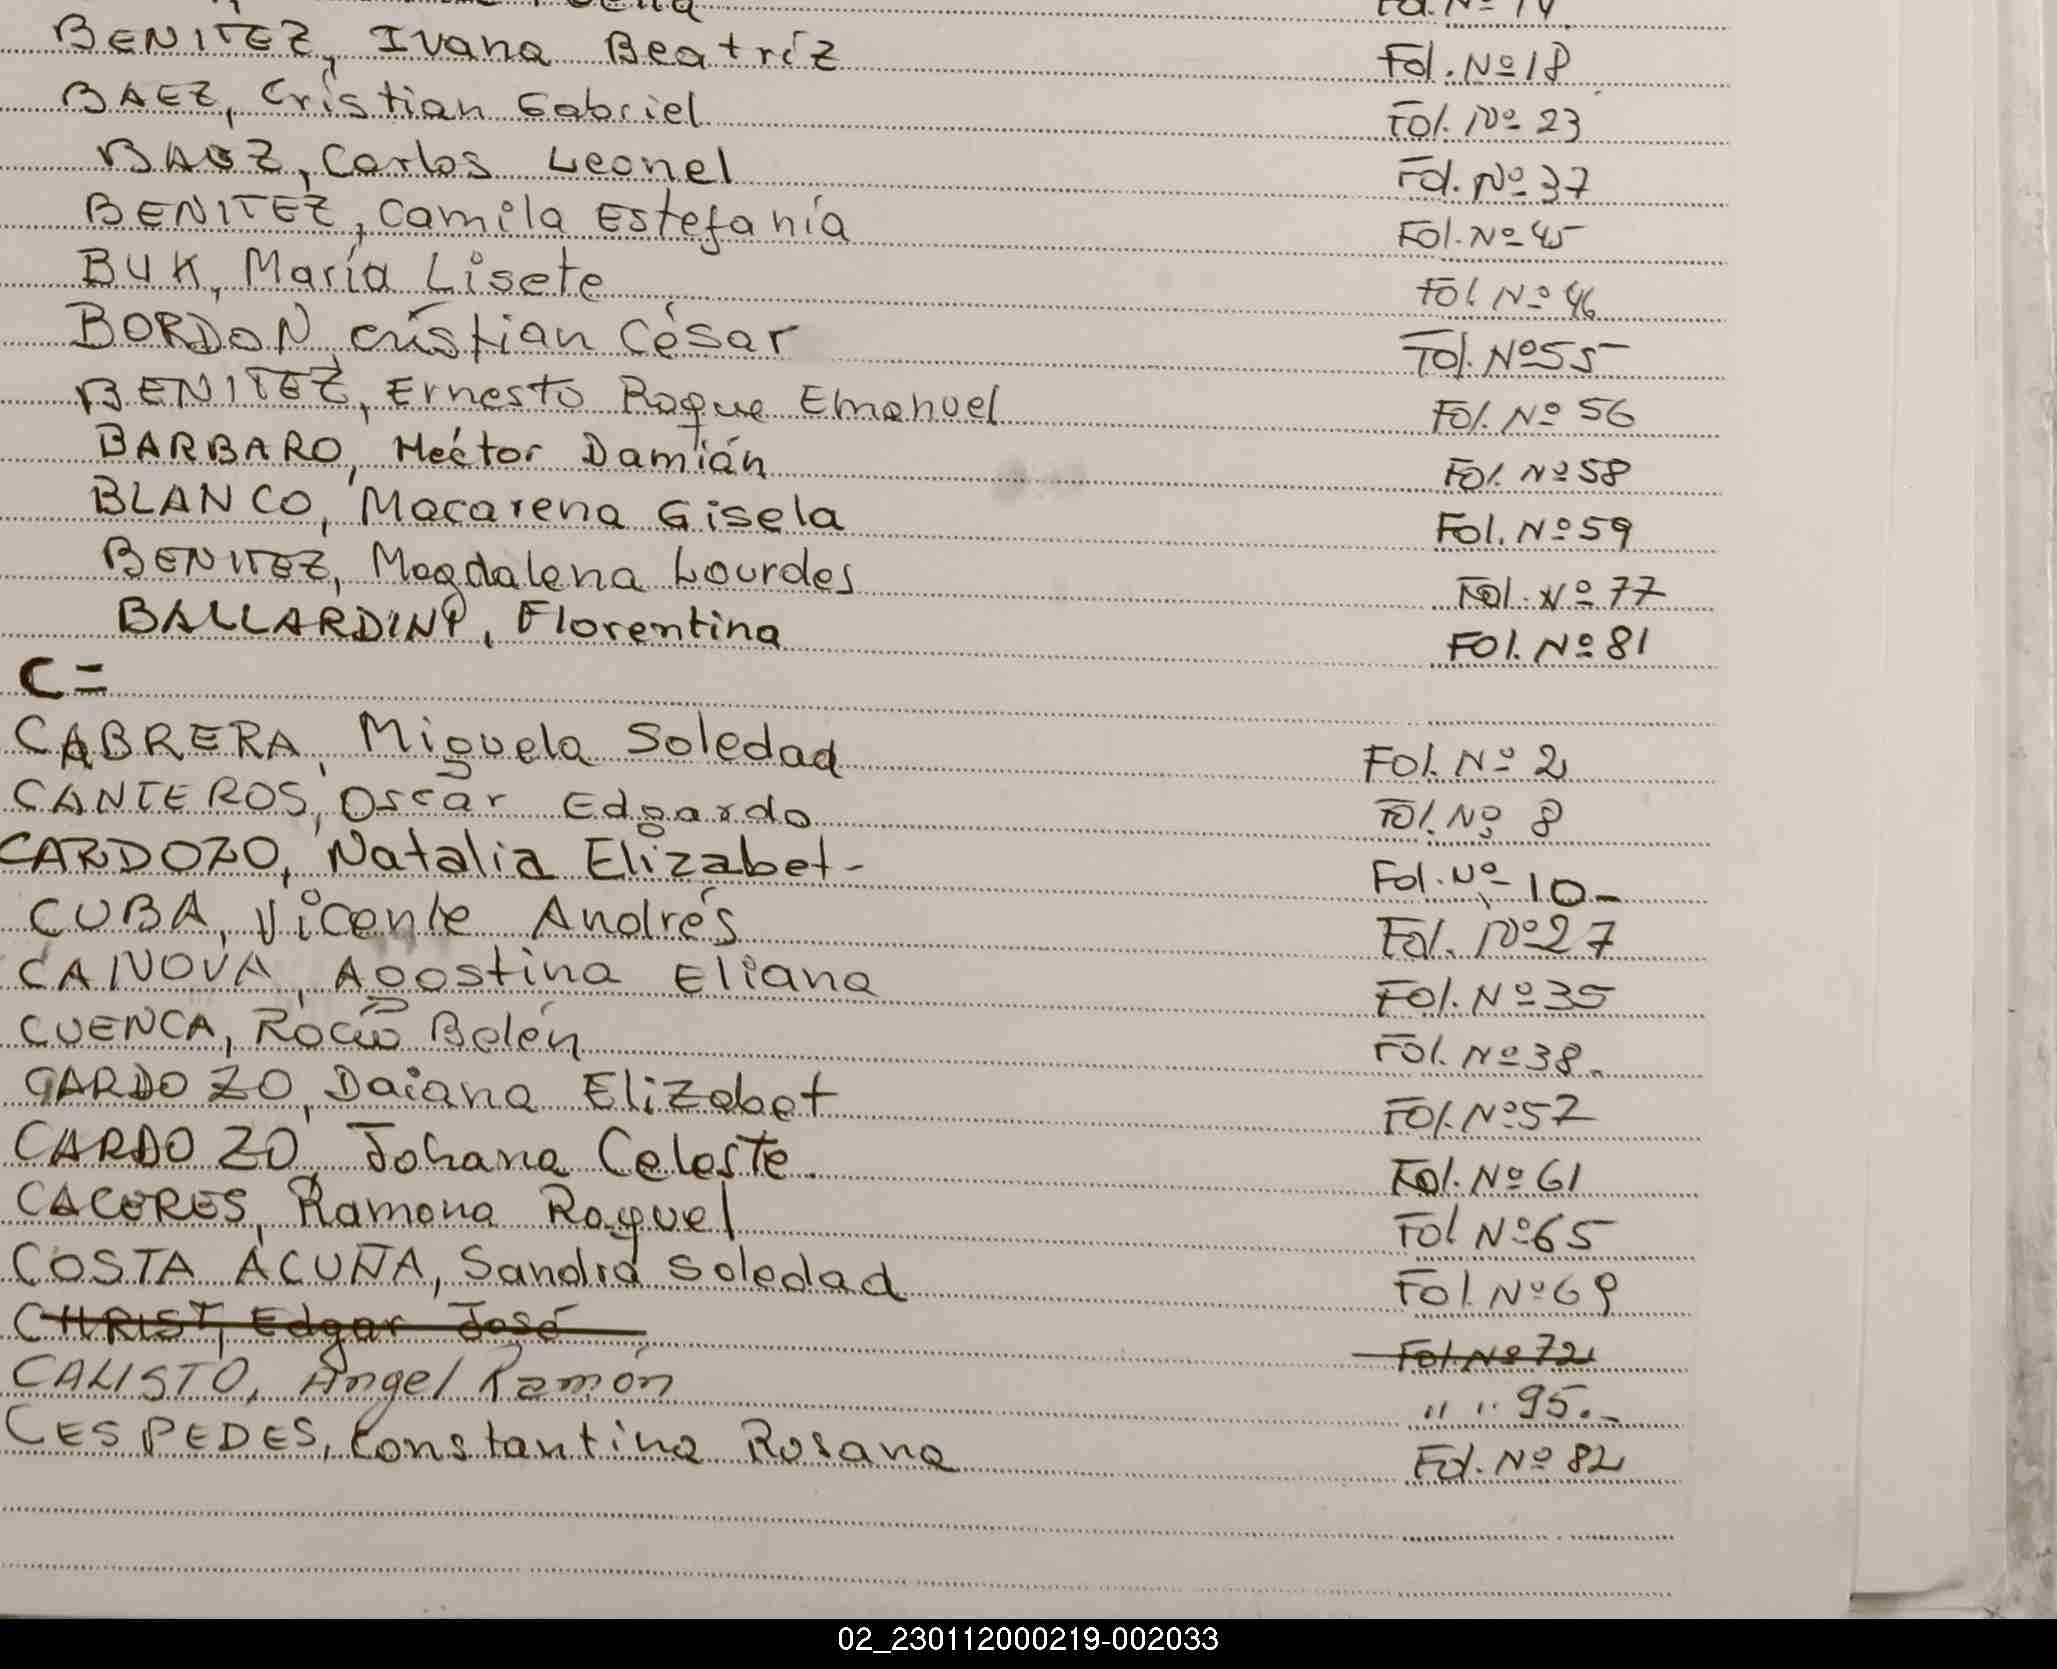 Fol. Nº 14.
BENITEZ, Ivana Beatríz Fol. Nº 18
BAEZ, Cristian Gabriel Fol. Nº 23
BAEZ, Carlos Leonel Fol. Nº 37
BENITEZ, Camila Estefanía Fol. Nº 45
BUK, María Lisete Fol Nº 46
BORDON, Cristian César Fol. Nº 55
BENITEZ, Ernesto Roque Emanuel Fol. Nº 56
BARBARO, Héctor Damián Fol. Nº 58
BLANCO, Macarena Gisela Fol. Nº 59
BENITEZ, Magdalena Lourdes Fol. Nº 77
BALLARDINI, Florentina Fol. Nº 81
C =
CABRERA, Miguela Soledad Fol. Nº 2
CANTEROS, Oscar Edgardo Fol. Nº 8
CARDOZO, Natalia Elizabet- Fol. Nº 10-
CUBA, Vicente Andrés Fol. Nº 27
CANOVA, Agostina Eliana Fol. Nº 35
CUENCA, Rocío Belén Fol. Nº 38.
CARDOZO, Daiana Elizabet Fol. Nº 57
CARDOZO, Johana Celeste. Fol. Nº 61
CACERES, Ramona Raquel Fol Nº 65
COSTA ACUÑA, Sandra Soledad Fol. Nº 69
CHRIST, Edgar José Fol. Nº 72
CALISTO, Angel Ramón " " 95.-
CESPEDES, Constantina Rosana Fol. Nº 82
02_230112000219-002033